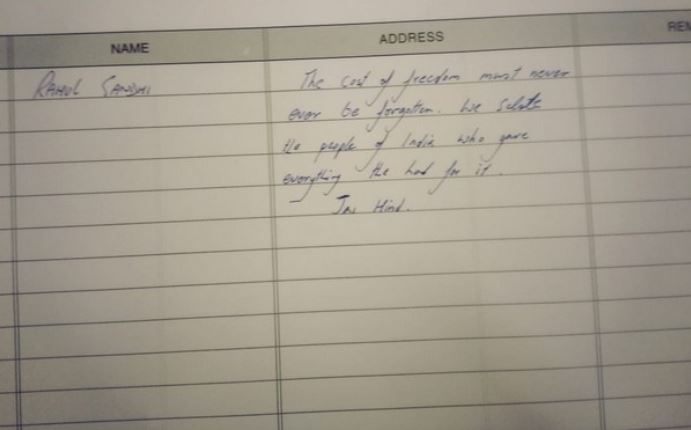 NAME ADDRESS REM
RAHUL GANDHI The cost of freedom must never
ever be forgotten. We salute
the people of India who gave
everything the had for it.
Jai Hind.